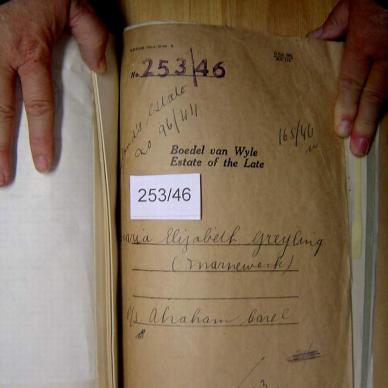 No. 253/46
Estate
96/44
165/46
Boedel van Wyle
Estate of the Late
253/46
Maria Elizabeth Greyling
(Marneweck)
Abraham Carel